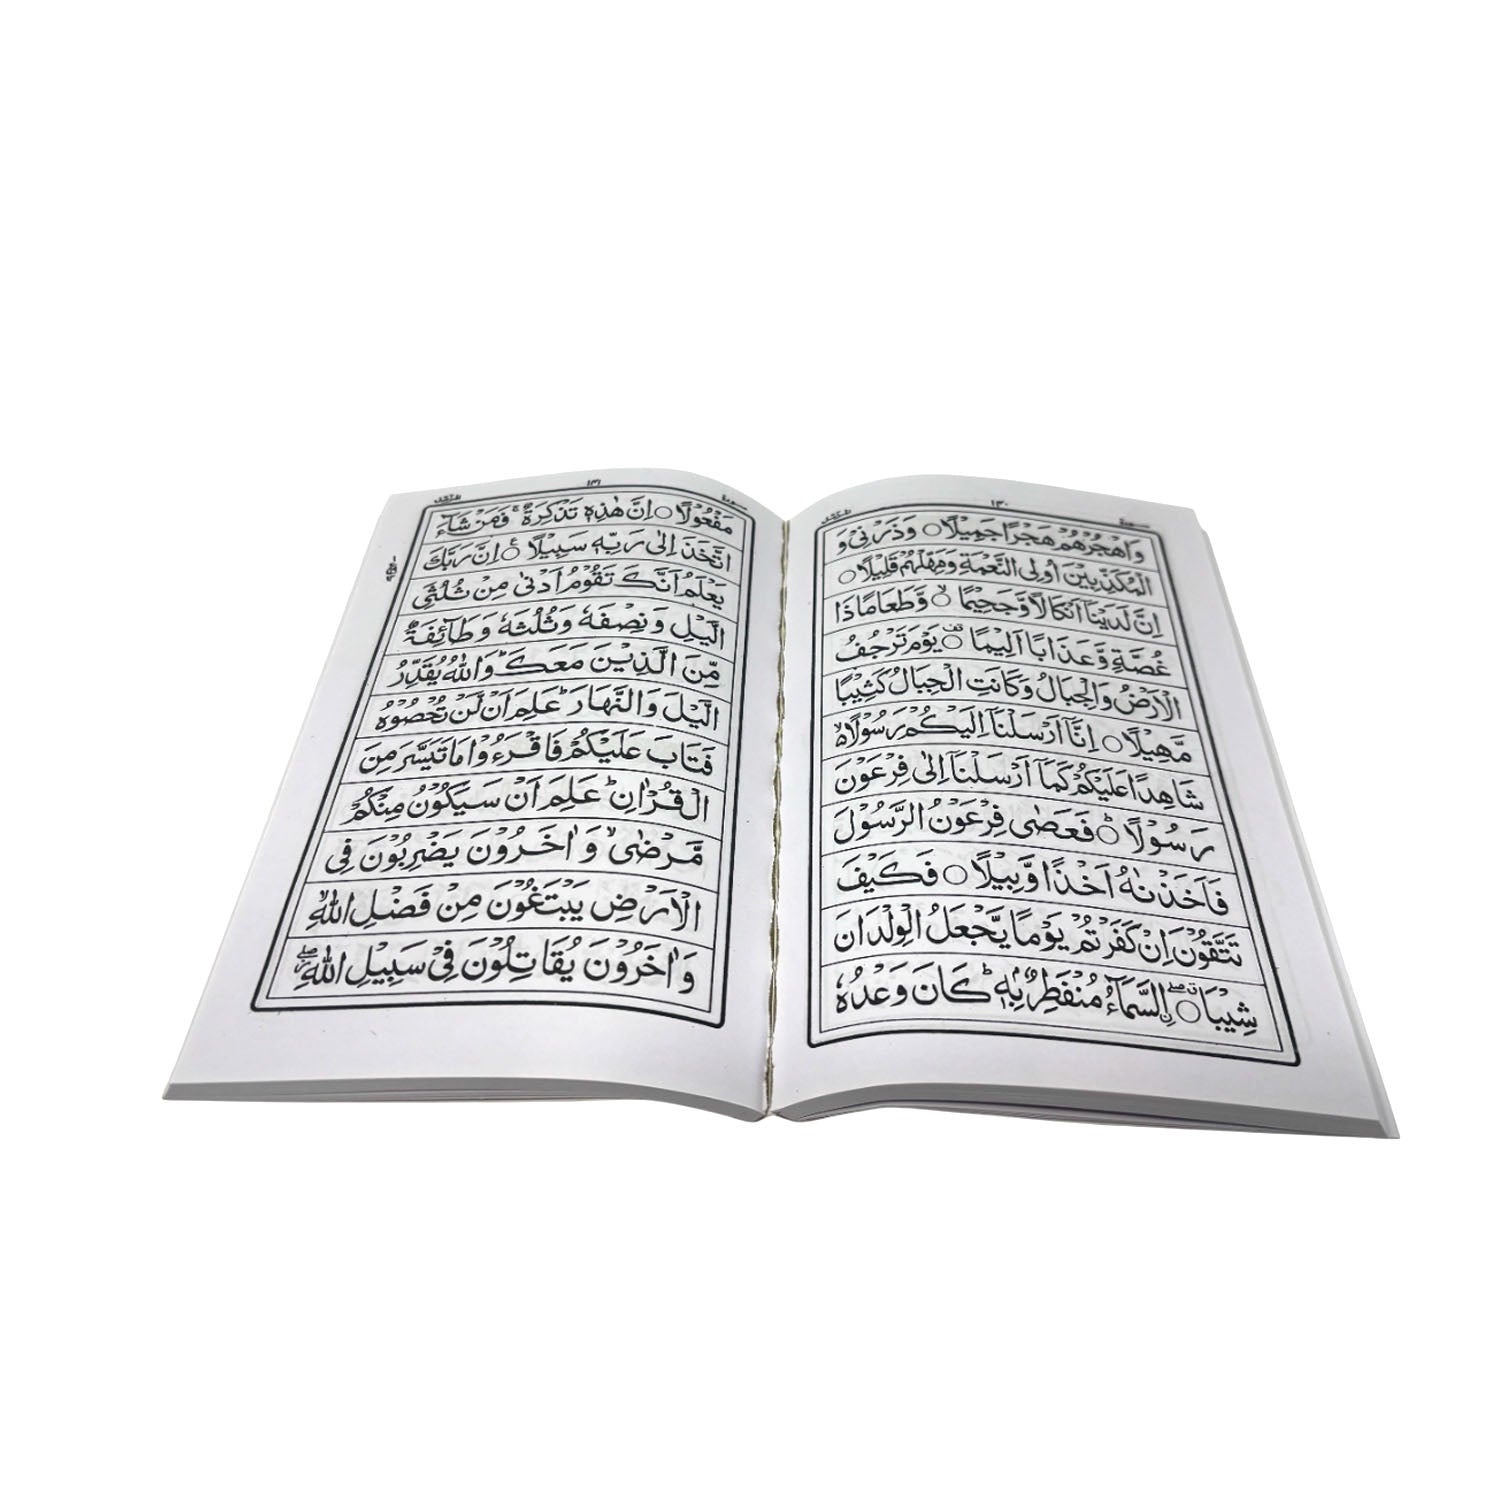 ١٣٠
وَاهْجُرْهُمْ هَجْرًا جَمِيْلًا ○ وَذَرْنِيْ وَ
الْمُكَذِّبِيْنَ اُولِى النَّعْمَةِ وَمَهِّلْهُمْ قَلِيْلًا ○
اِنَّ لَدَيْنَاۤ اَنْكَالًا وَّجَحِيْمًا ○ۙ وَّطَعَامًا ذَا
غُصَّةٍ وَّعَذَابًا اَلِيْمًا ○ۗ يَوْمَ تَرْجُفُ
الْاَرْضُ وَالْجِبَالُ وَكَانَتِ الْجِبَالُ كَثِيْبًا
مَّهِيْلًا ○ اِنَّاۤ اَرْسَلْنَاۤ اِلَيْكُمْ رَسُوْلًا ۙ
شَاهِدًا عَلَيْكُمْ كَمَاۤ اَرْسَلْنَاۤ اِلٰى فِرْعَوْنَ
رَسُوْلًا ○ؕ فَعَصٰى فِرْعَوْنُ الرَّسُوْلَ
فَاَخَذْنٰهُ اَخْذًا وَّبِيْلًا ○ فَكَيْفَ
تَتَّقُوْنَ اِنْ كَفَرْتُمْ يَوْمًا يَّجْعَلُ الْوِلْدَانَ
شِيْبَا ○ۖ السَّمَآءُ مُنْفَطِرٌۢ بِهٖ ؕ كَانَ وَعْدُهٗ
١٣١
مَفْعُوْلًا ○ اِنَّ هٰذِهٖ تَذْكِرَةٌ ۚ فَمَنْ شَآءَ
اتَّخَذَ اِلٰى رَبِّهٖ سَبِيْلًا ○ اِنَّ رَبَّكَ
يَعْلَمُ اَنَّكَ تَقُوْمُ اَدْنٰى مِنْ ثُلُثَيِ
الَّيْلِ وَنِصْفَهٗ وَثُلُثَهٗ وَطَآئِفَةٌ
مِّنَ الَّذِيْنَ مَعَكَ ؕ وَاللّٰهُ يُقَدِّرُ
الَّيْلَ وَالنَّهَارَ ؕ عَلِمَ اَنْ لَّنْ تُحْصُوْهُ
فَتَابَ عَلَيْكُمْ فَاقْرَءُوْا مَا تَيَسَّرَ مِنَ
الْقُرْاٰنِ ؕ عَلِمَ اَنْ سَيَكُوْنُ مِنْكُمْ
مَّرْضٰى ۙ وَاٰخَرُوْنَ يَضْرِبُوْنَ فِى
الْاَرْضِ يَبْتَغُوْنَ مِنْ فَضْلِ اللّٰهِ ۙ
وَاٰخَرُوْنَ يُقَاتِلُوْنَ فِيْ سَبِيْلِ اللّٰهِ ۖ